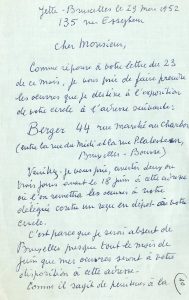 Jette-Bruxelles le 29 mai 1952
135 rue Esseghem
Cher Monsieur,
Comme réponse à votre lettre du 23
de ce mois, je vous prie de faire prendre
les oeuvres que je destine à l'exposition
de votre cercle à l'adresse suivante:
Berger 44 rue marché au Charbon
(entre la rue du Midi et la rue Plattesteen,
Bruxelles - Bourse)
Veuillez, je vous prie, deux ou
trois jours avant le 18 juin à cette adresse
où l'on remettra les oeuvres à votre
délégué contre un reçu en dépôt à votre
cercle.
C'est parce que je serai absent de
Bruxelles presque tout le mois de
juin que mes oeuvres seront à votre
disposition à cette adresse.
Comme il s'agit de peintures à la